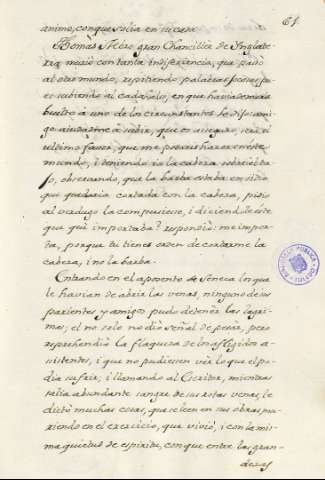 61
animo, con que solia en su casa
Thomás Moro gran Chanciller de Inglate-
rra murió con tanta indiferencia, que pasó
al otro mundo, repitiendo palabras jocosas, pu-
es subiendo al cadahalso, en que havia de morir
buelto a uno de los circunstantes le dijo: ami-
go ayudadme a subir, que os aseguro, será el
ultimo favor, que me podreis hacer en este
mundo, i teniendo ia la cabeza sobre el ta-
jo, observando, que la barba estaba en sitio
que quedaria cortada con la cabeza, pidió
al verdugo la compusiese, i diciendole este
que qué importaba? respondió: me impor-
ta, porque tu tienes orden de cortarme la
cabeza, i no la barba.
Entrando en el aposento de Seneca en que
le havian de abrir las venas, ninguno de sus
parientes y amigos pudo detener las lagri-
mas; el no solo no dió señal de pesar, pero
reprehendió la flaqueza de los afligidos a-
sistentes, i que no pudiesen ver lo que el po-
dia sufrir, i llamando al Escritor, mientras
salia abundante sangre de sus rotas venas, le
dictó muchas cosas, que se leen en sus obras mu-
riendo en el exercicio, que vivió, i con la mis-
ma quietud de espiritu, con que entre las gran-
dezas